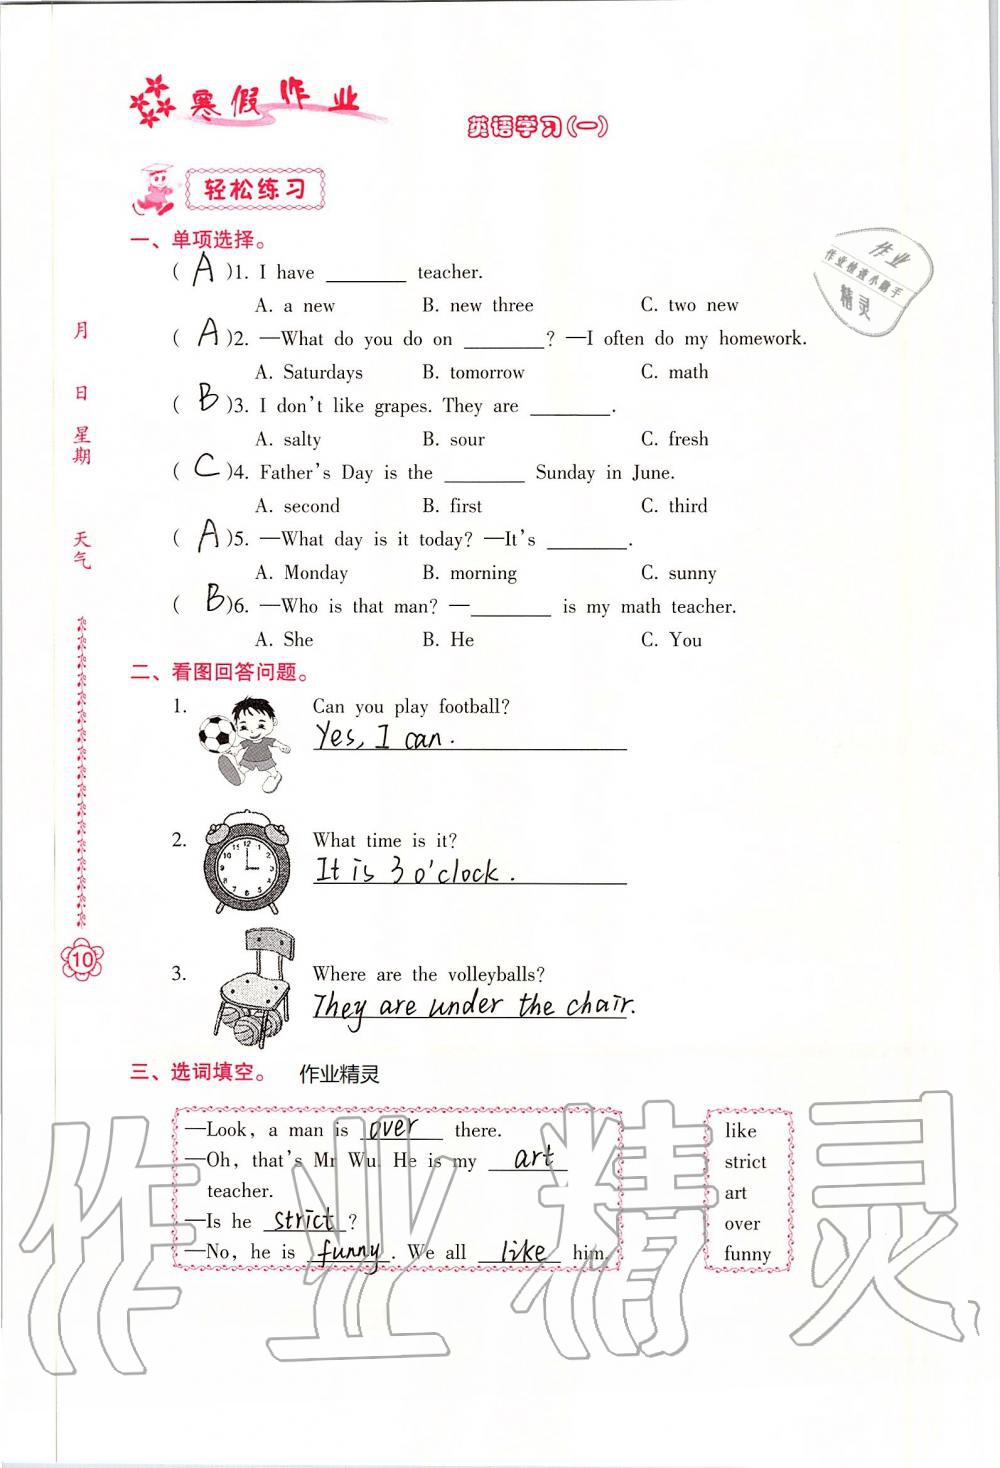 寒假作业
英语学习(一)
轻松练习
一、单项选择。
( A )1. I have ________ teacher.
A. a new B. new three C. two new
( A )2. —What do you do on ________? —I often do my homework.
A. Saturdays B. tomorrow C. math
( B )3. I don't like grapes. They are ________.
A. salty B. sour C. fresh
( C )4. Father's Day is the ________ Sunday in June.
A. second B. first C. third
( A )5. —What day is it today? —It's ________.
A. Monday B. morning C. sunny
( B )6. —Who is that man? —________ is my math teacher.
A. She B. He C. You
二、看图回答问题。
1. Can you play football?
Yes, I can.
2. What time is it?
It is 3 o'clock.
3. Where are the volleyballs?
They are under the chair.
三、选词填空。 作业精灵
—Look, a man is over there.
—Oh, that's Mr Wu. He is my art
teacher.
—Is he strict?
—No, he is funny. We all like him.
like
strict
art
over
funny
月
日
星期
天气
10
作业
作业检查小助手
精灵
作业精灵